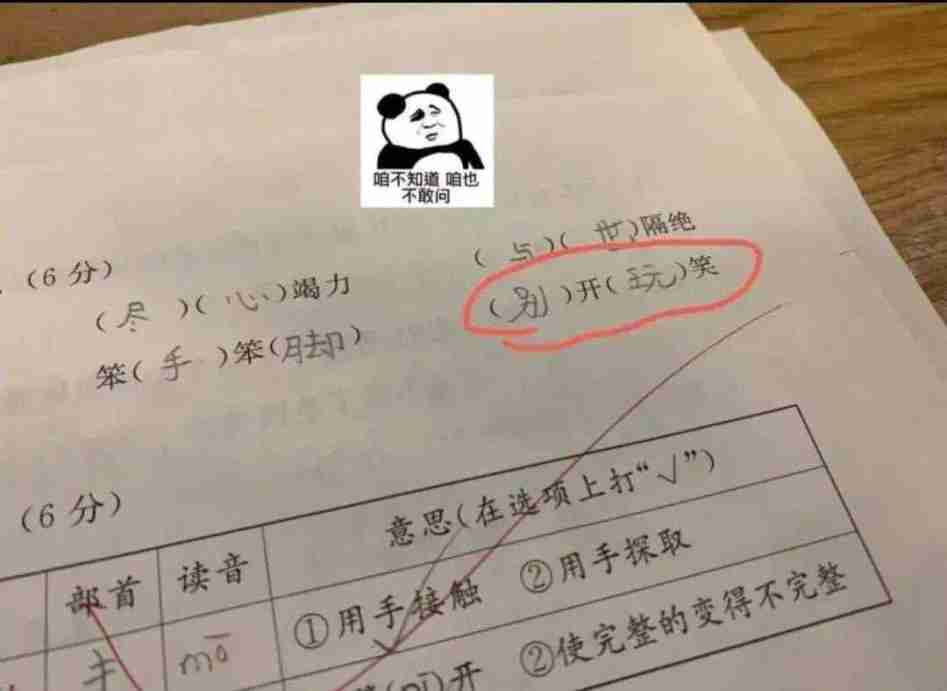 咱不知道 咱也
不敢问
(6分)
(与)(世)隔绝
(尽)(心)竭力
(别)开(玩)笑
笨(手)笨(脚)
(6分)
部首
读音
意思(在选项上打“√”)
扌
mō
①用手接触 ②用手探取
开 ②使完整的变得不完整